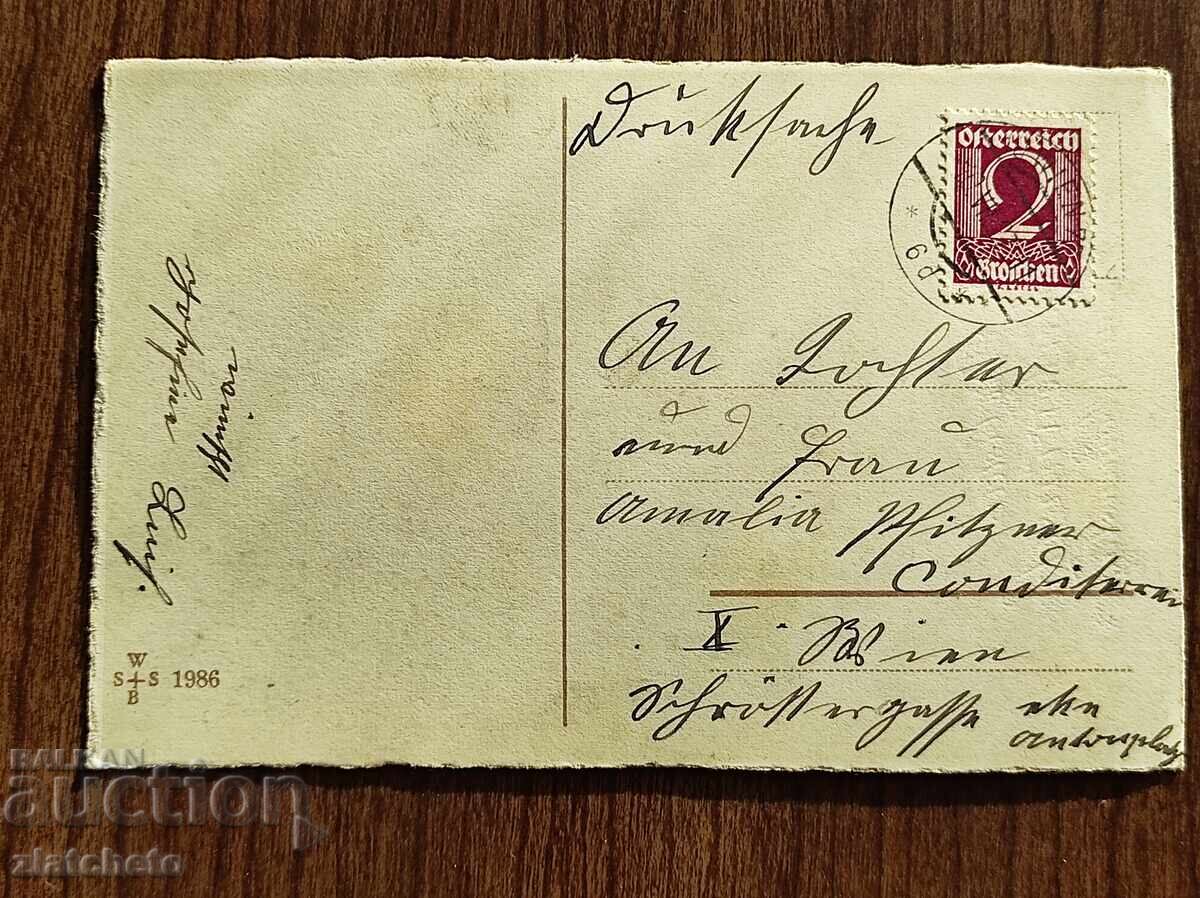 Drucksache
Österreich
2
Groschen
An Tochter
und Frau
Amalia Pfitzner
Conditerrei
X. Wien
Schröttergasse eke
Antonsplatz
W
S+S 1986
B
BALKAN
auction
zlatcheto